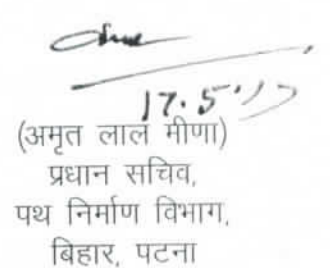 17.5.17
(अमृत लाल मीणा)
प्रधान सचिव,
पथ निर्माण विभाग,
बिहार, पटना